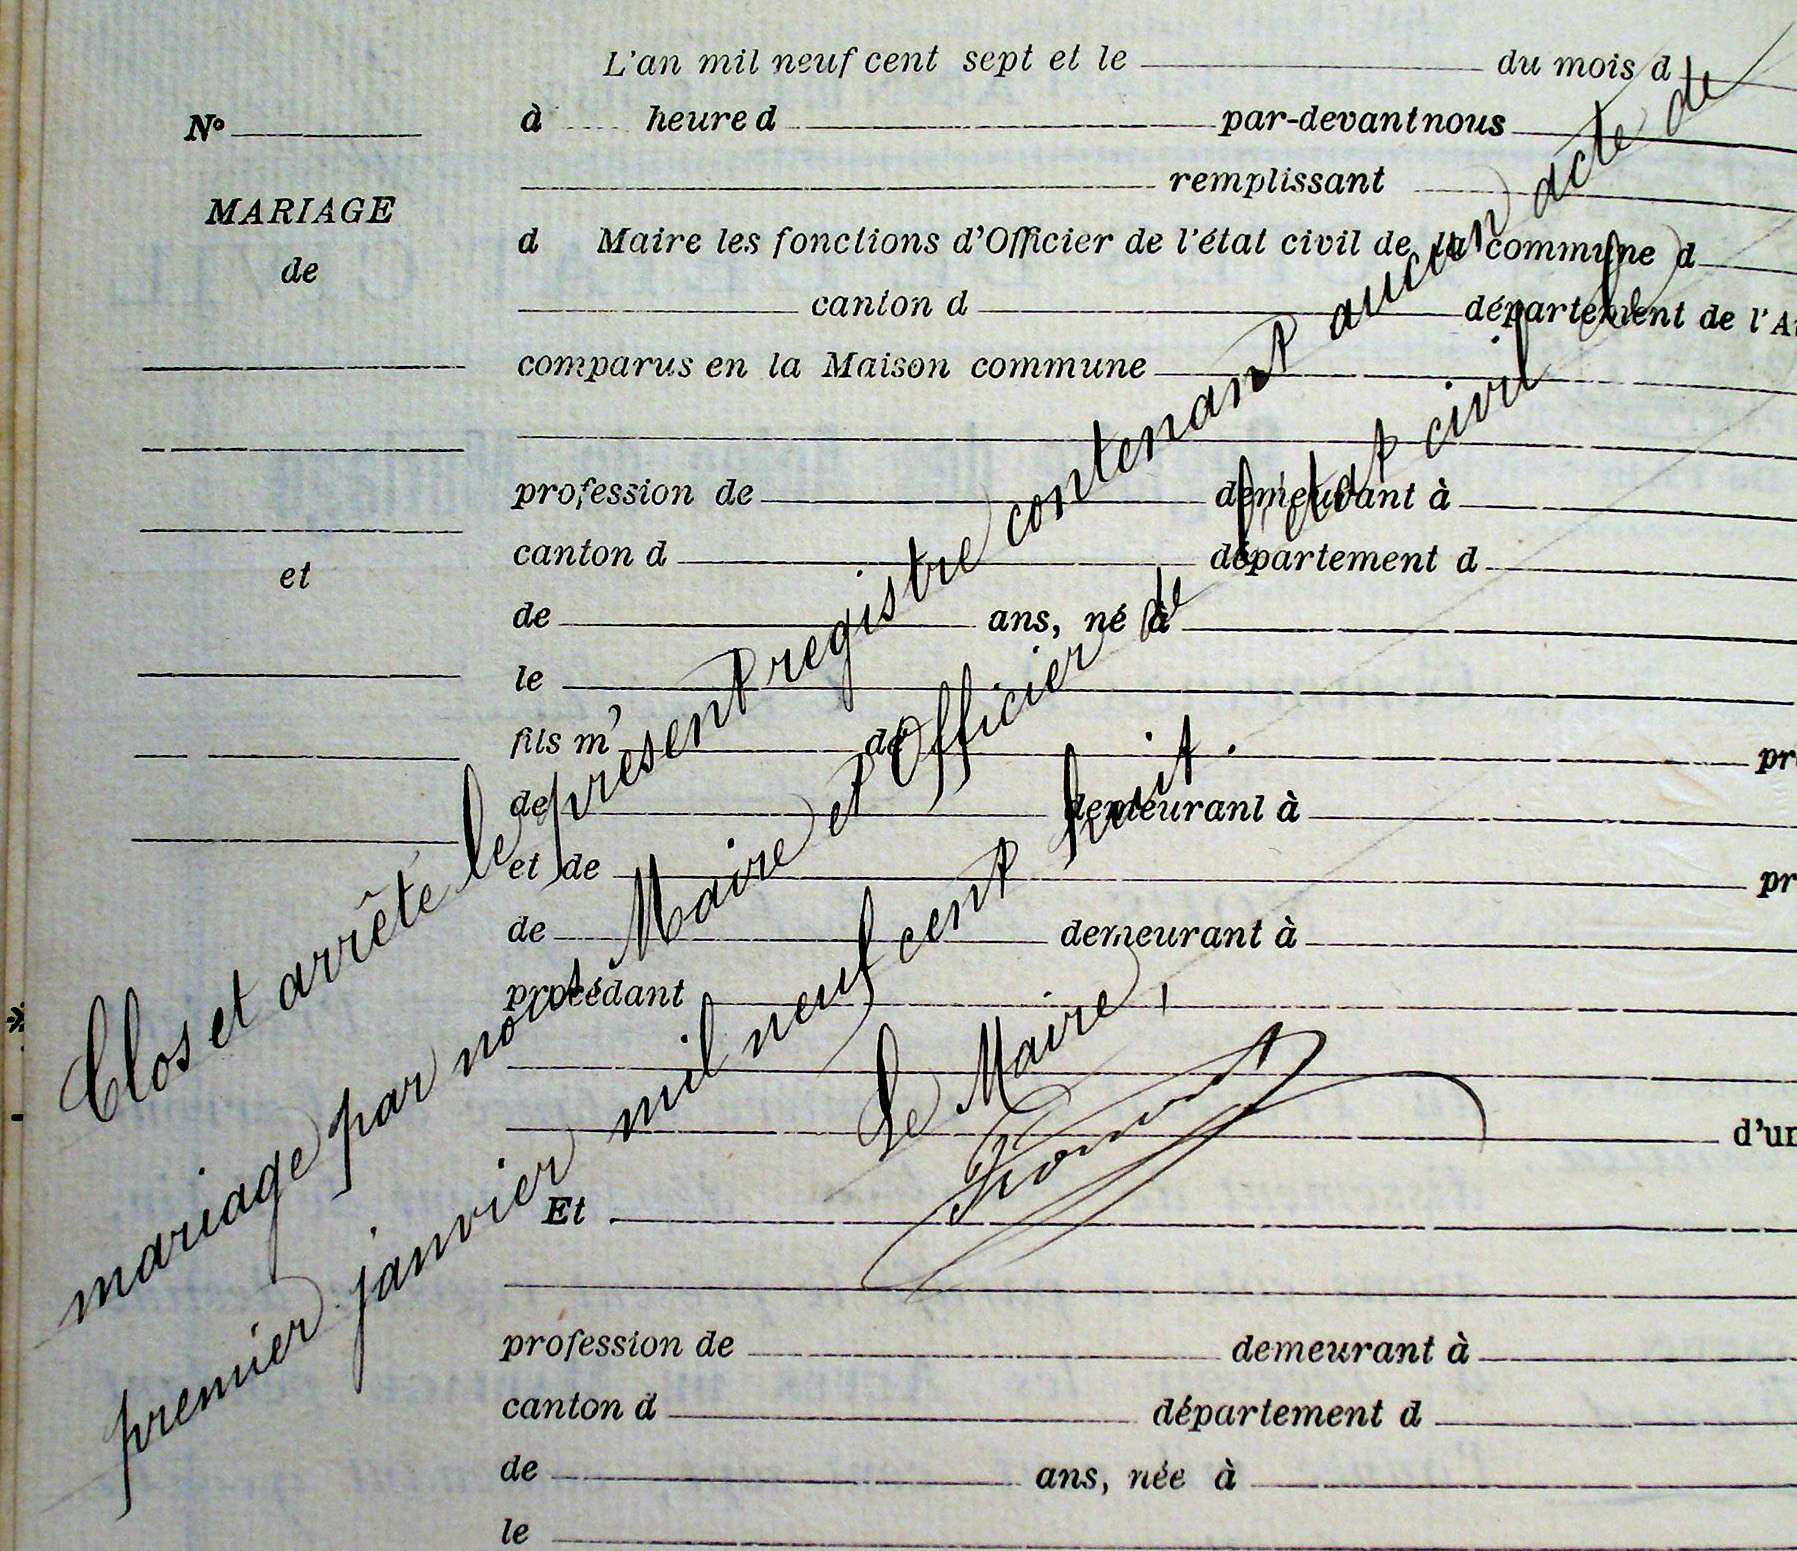 L'an mil neuf cent sept et le du mois d
à heure d par-devant nous
N°
remplissant
MARIAGE
d Maire les fonctions d'Officier de l'état civil de la commune d
de
canton d département de l'A
comparus en la Maison commune
profession de demeurant à
canton d département d
et
de ans, né à
le
fils m de pr
de demeurant à
et de pr
de demeurant à
procédant
d'un
Et
profession de demeurant à
canton d département d
de ans, née à
le
Clos et arrêté le présent registre contenant aucun acte de
mariage par nous Maire et Officier de l'état civil le
premier janvier mil neuf cent huit.
Le Maire,